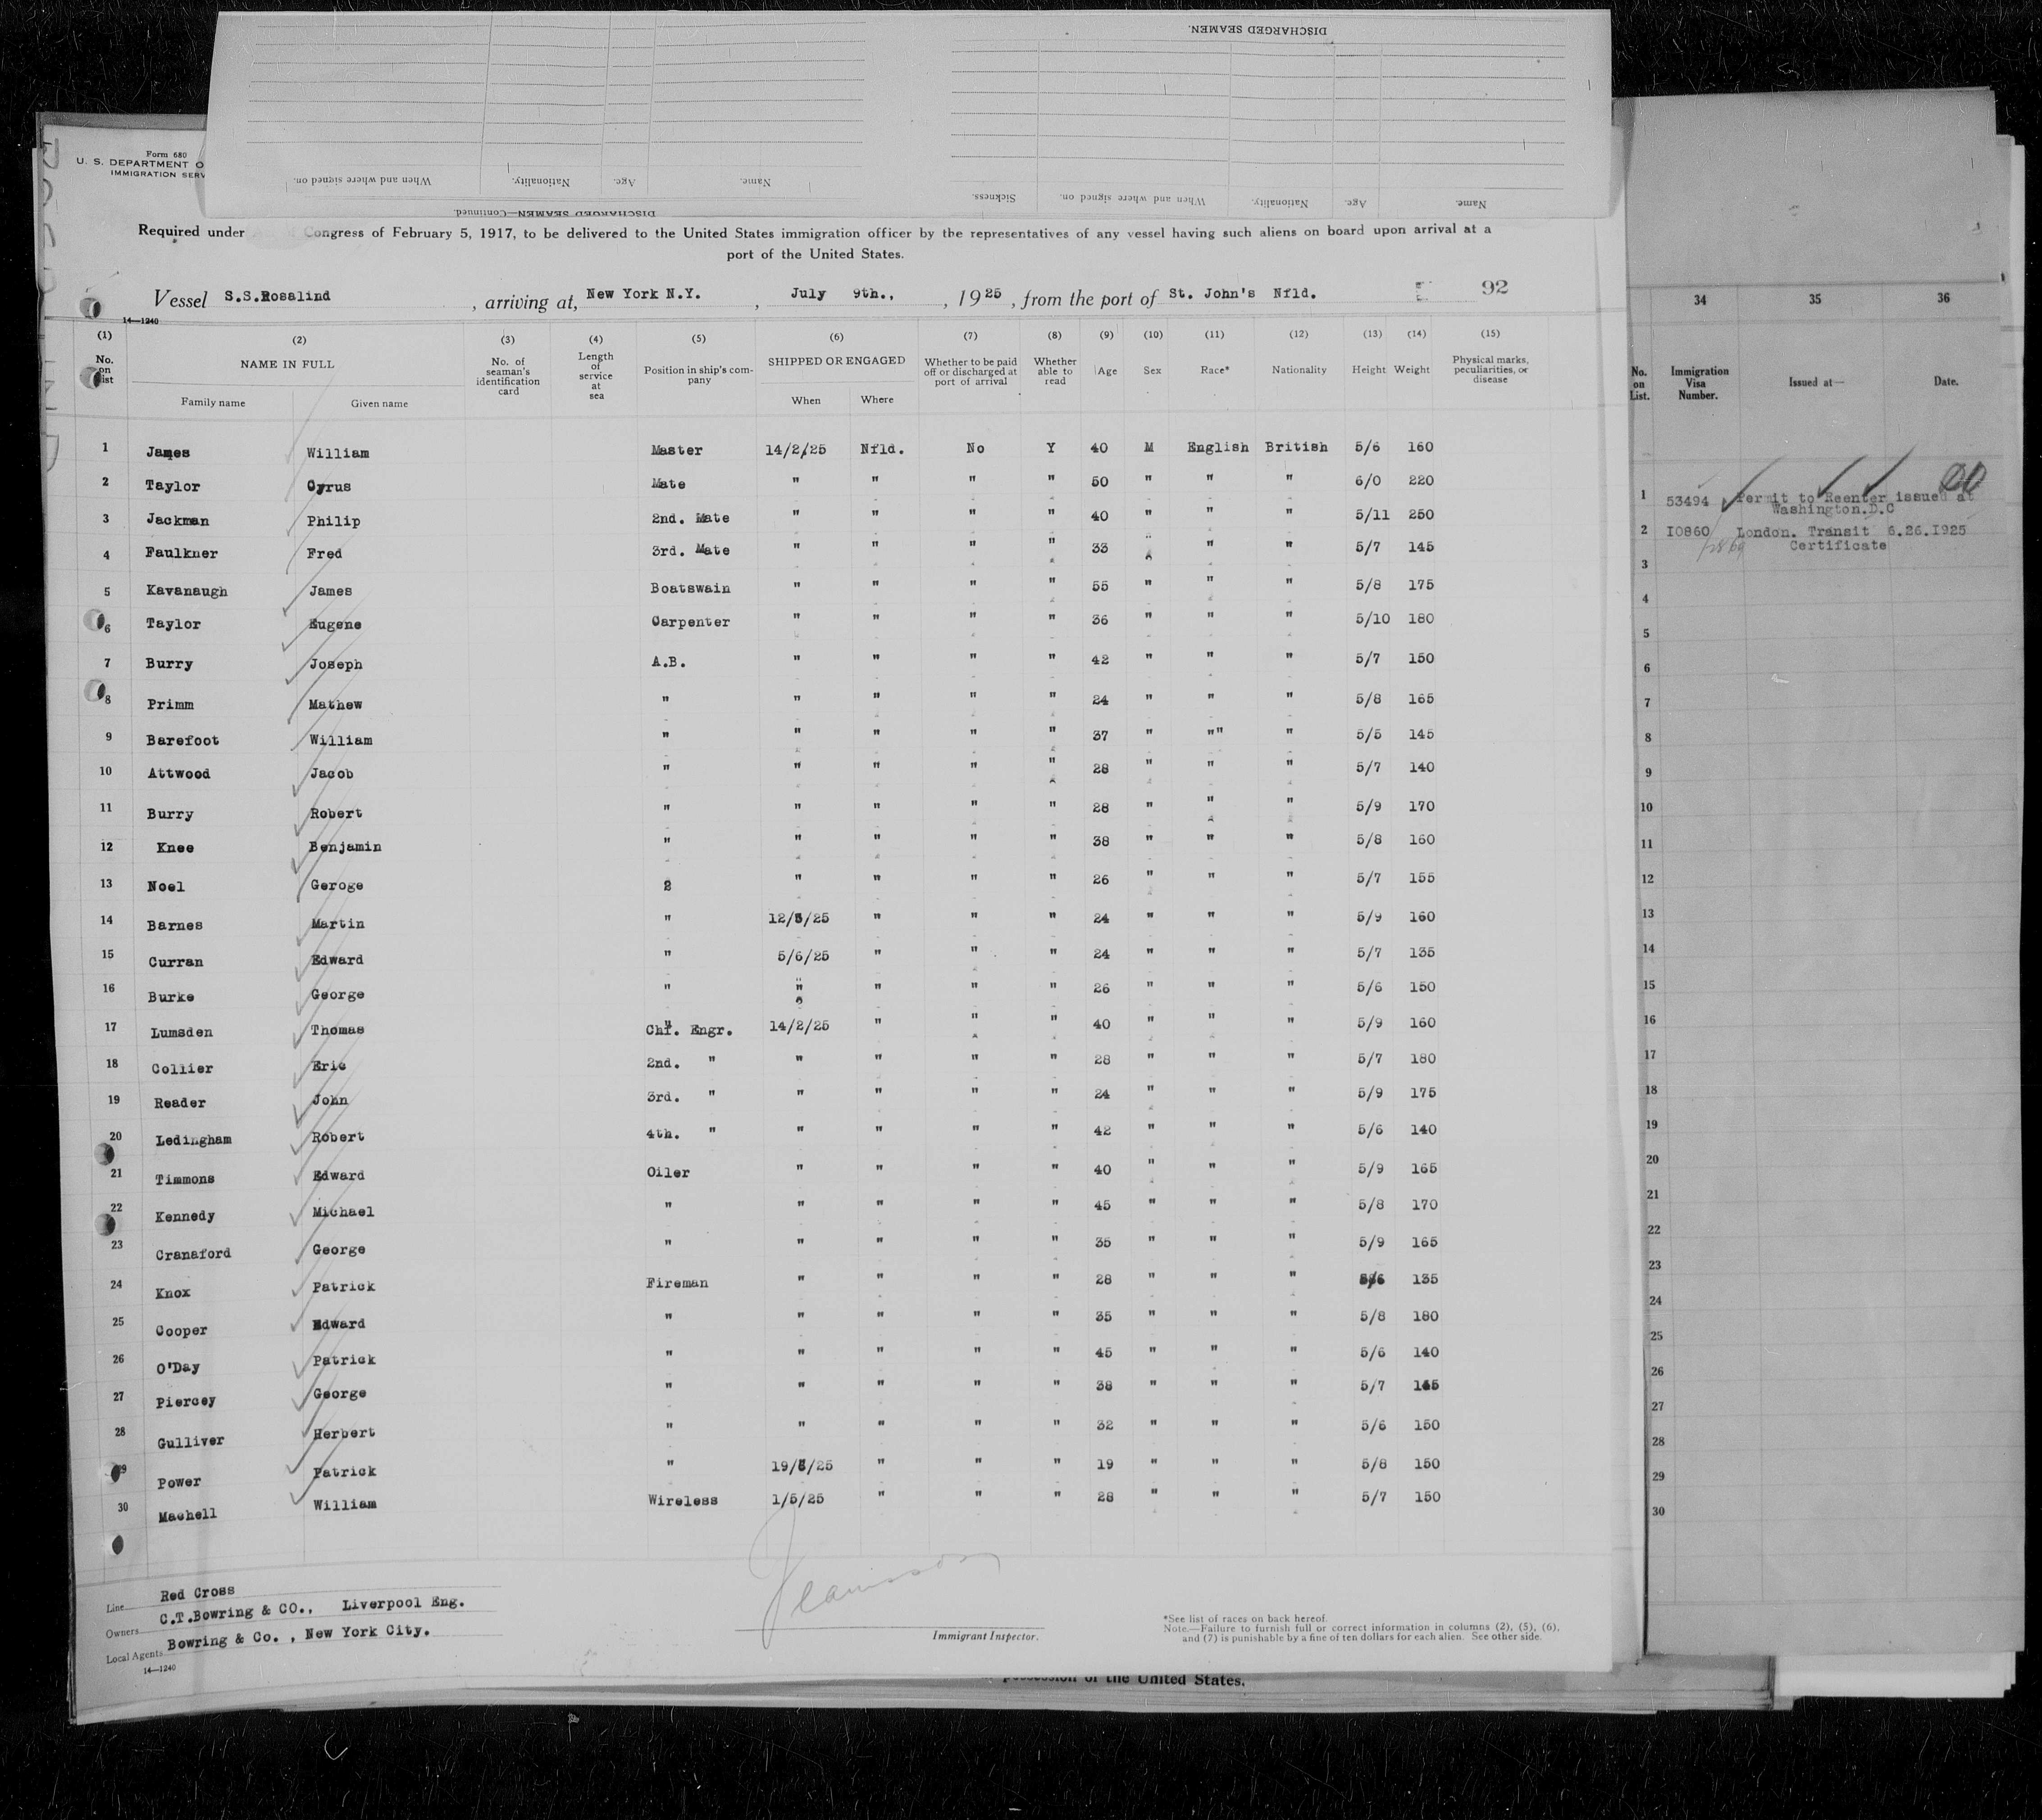 DISCHARGED SEAMEN.
Name. Age. Nationality. When and where signed on. Sickness.
Name. Age. Nationality. When and where signed on.
DISCHARGED SEAMEN—Continued.
Form 680
U. S. DEPARTMENT O
IMMIGRATION SERV
Required under Congress of February 5, 1917, to be delivered to the United States immigration officer by the representatives of any vessel having such aliens on board upon arrival at a
port of the United States.
Vessel S.S.Rosalind, arriving at, New York N.Y., July 9th., , 1925, from the port of St. John's Nfld. 92
14—1240
(1) (2) (3) (4) (5) (6) (7) (8) (9) (10) (11) (12) (13) (14) (15)
No. on list NAME IN FULL Family name Given name No. of seaman's identification card Length of service at sea Position in ship's company SHIPPED OR ENGAGED When Where Whether to be paid off or discharged at port of arrival Whether able to read Age Sex Race* Nationality Height Weight Physical marks, peculiarities, or disease
1 James William Master 14/2/25 Nfld. No Y 40 M English British 5/6 160
2 Taylor Cyrus Mate " " " " 50 " " " 6/0 220
3 Jackman Philip 2nd. Mate " " " " 40 " " " 5/11 250
4 Faulkner Fred 3rd. Mate " " " " 33 " " " 5/7 145
5 Kavanaugh James Boatswain " " " " 55 " " " 5/8 175
6 Taylor Eugene Carpenter " " " " 36 " " " 5/10 180
7 Burry Joseph A.B. " " " " 42 " " " 5/7 150
8 Primm Mathew " " " " " 24 " " " 5/8 165
9 Barefoot William " " " " " 37 " "" " 5/5 145
10 Attwood Jacob " " " " " 28 " " " 5/7 140
11 Burry Robert " " " " " 28 " " " 5/9 170
12 Knee Benjamin " " " " " 38 " " " 5/8 160
13 Noel Geroge 2 " " " " 26 " " " 5/7 155
14 Barnes Martin " 12/5/25 " " " 24 " " " 5/9 160
15 Curran Edward " 5/6/25 " " " 24 " " " 5/7 135
16 Burke George " " " " " 26 " " " 5/6 150
17 Lumsden Thomas Chf. Engr. 14/2/25 " " " 40 " " " 5/9 160
18 Collier Eric 2nd. " " " " " 28 " " " 5/7 180
19 Reader John 3rd. " " " " " 24 " " " 5/9 175
20 Ledingham Robert 4th. " " " " " 42 " " " 5/6 140
21 Timmons Edward Oiler " " " " 40 " " " 5/9 165
22 Kennedy Michael " " " " " 45 " " " 5/8 170
23 Cranaford George " " " " " 35 " " " 5/9 165
24 Knox Patrick Fireman " " " " 28 " " " 5/6 135
25 Cooper Edward " " " " " 35 " " " 5/8 180
26 O'Day Patrick " " " " " 45 " " " 5/6 140
27 Piercey George " " " " " 38 " " " 5/7
28 Gulliver Herbert " " " " " 32 " " " 5/6 150
29 Power Patrick " " " " 19 " " " 5/8 150
30 Machell William Wireless 1/5/25 " " " 28 " " " 5/7 150
Line Red Cross
Owners C.T.Bowring & CO., Liverpool Eng.
Local Agents Bowring & Co. , New York City.
14—1240
Immigrant Inspector.
*See list of races on back hereof.
Note.—Failure to furnish full or correct information in columns (2), (5), (6),
and (7) is punishable by a fine of ten dollars for each alien. See other side.
possession of the United States.
34 35 36
No. on List. Immigration Visa Number. Issued at— Date.
1 53494 Permit to Reenter issued at
Washington.D.C
2 I0860 London. Transit 6.26.1925
Certificate
3
4
5
6
7
8
9
10
11
12
13
14
15
16
17
18
19
20
21
22
23
24
25
26
27
28
29
30